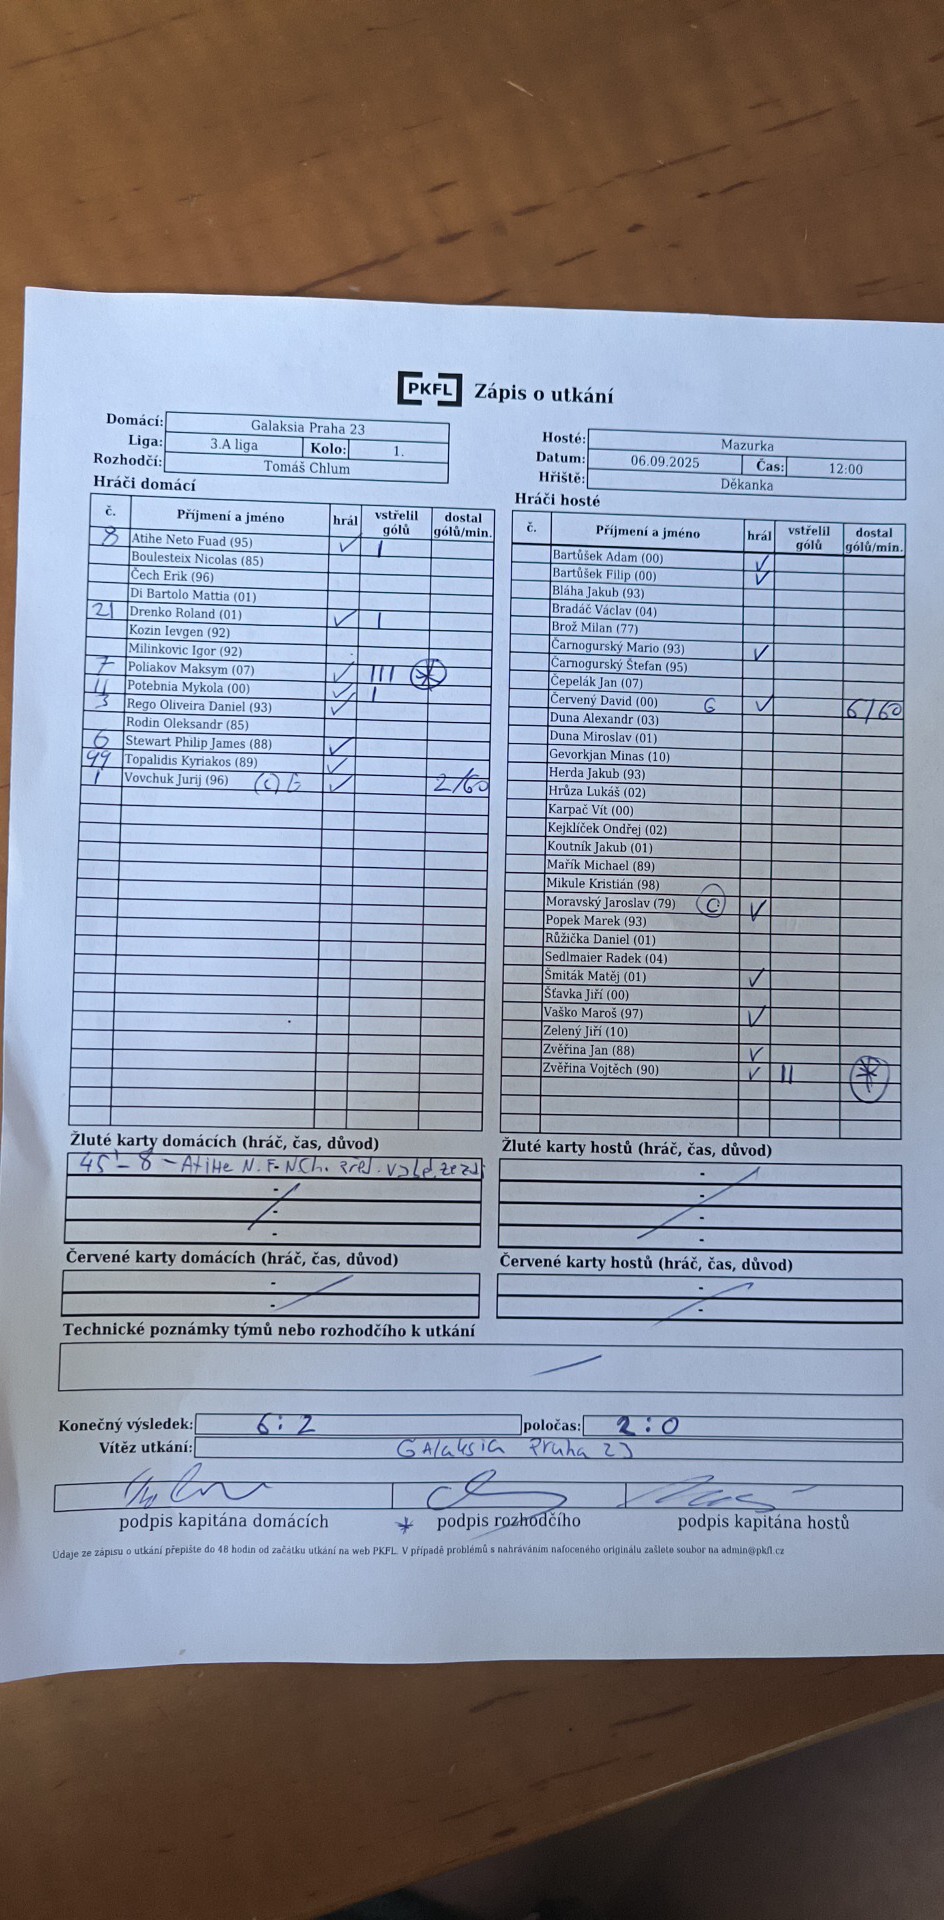 PKFL Zápis o utkání
Domácí: Galaksia Praha 23
Liga: 3.A liga Kolo: 1.
Rozhodčí: Tomáš Chlum
Hosté: Mazurka
Datum: 06.09.2025 Čas: 12:00
Hřiště: Děkanka
Hráči domácí
č. Příjmení a jméno hrál vstřelil gólů dostal gólů/min.
8 Atihe Neto Fuad (95) ✓ I
Boulesteix Nicolas (85)
Čech Erik (96)
Di Bartolo Mattia (01)
21 Drenko Roland (01) ✓ I
Kozin Ievgen (92)
Milinkovic Igor (92)
7 Poliakov Maksym (07) ✓ III *
11 Potebnia Mykola (00) ✓ I
3 Rego Oliveira Daniel (93) ✓
Rodin Oleksandr (85)
6 Stewart Philip James (88) ✓
99 Topalidis Kyriakos (89) ✓
1 Vovchuk Jurij (96) (C) G ✓ 2/60
Hráči hosté
č. Příjmení a jméno hrál vstřelil gólů dostal gólů/min.
Bartůšek Adam (00) ✓
Bartůšek Filip (00) ✓
Bláha Jakub (93)
Bradáč Václav (04)
Brož Milan (77)
Čarnogurský Mario (93) ✓
Čarnogurský Štefan (95)
Čepelák Jan (07)
Červený David (00) G ✓ 6/60
Duna Alexandr (03)
Duna Miroslav (01)
Gevorkjan Minas (10)
Herda Jakub (93)
Hrůza Lukáš (02)
Karpač Vít (00)
Kejklíček Ondřej (02)
Koutník Jakub (01)
Mařík Michael (89)
Mikule Kristián (98)
Moravský Jaroslav (79) C ✓
Popek Marek (93)
Růžička Daniel (01)
Sedlmaier Radek (04)
Šmiták Matěj (01) ✓
Šťavka Jiří (00)
Vaško Maroš (97) ✓
Zelený Jiří (10)
Zvěřina Jan (88) ✓
Zvěřina Vojtěch (90) ✓ II *
Žluté karty domácích (hráč, čas, důvod)
45' - 8 - Atihe N. F.
-
-
-
Žluté karty hostů (hráč, čas, důvod)
-
-
-
-
Červené karty domácích (hráč, čas, důvod)
-
-
Červené karty hostů (hráč, čas, důvod)
-
-
Technické poznámky týmů nebo rozhodčího k utkání
Konečný výsledek: 6:2 poločas: 2:0
Vítěz utkání: GAlaksia Praha 23
podpis kapitána domácích * podpis rozhodčího podpis kapitána hostů
Údaje ze zápisu o utkání přepište do 48 hodin od začátku utkání na web PKFL. V případě problémů s nahráváním nafoceného originálu zašlete soubor na admin@pkfl.cz